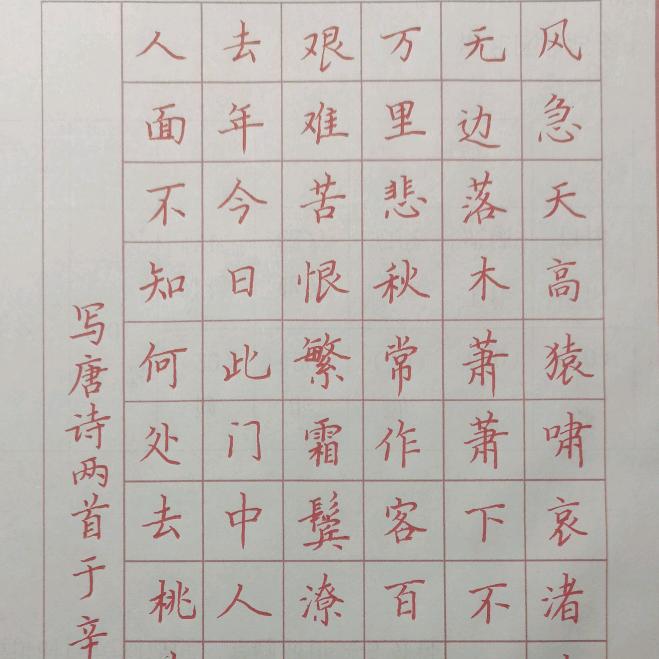 风急天高猿啸哀渚
无边落木萧萧下不
万里悲秋常作客百
艰难苦恨繁霜鬓潦
去年今日此门中人
人面不知何处去桃
写唐诗两首于辛